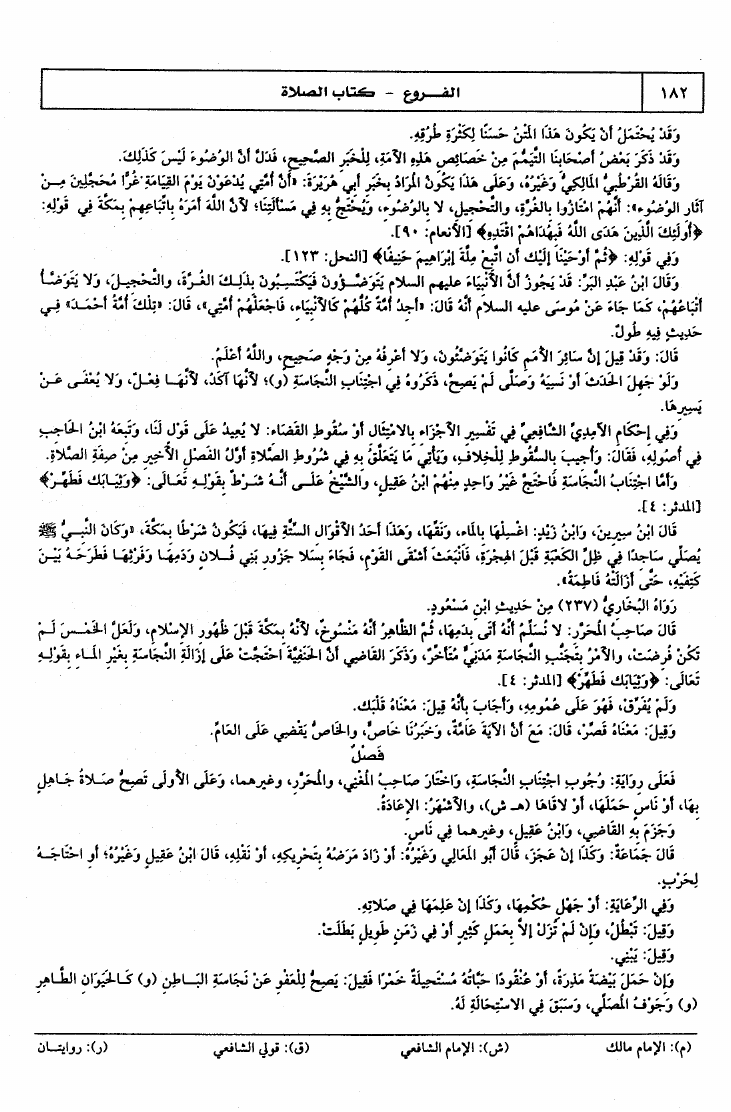 ١٨٢
الفروع - كتاب الصلاة
وَقَدْ يُحْتَمَلُ أَنْ يَكُونَ هَذَا الْمَتْنُ حَسَنًا لِكَثْرَةِ طُرُقِهِ.
وَقَدْ ذَكَرَ بَعْضُ أَصْحَابِنَا التَّيَمُّمَ مِنْ خَصَائِصِ هَذِهِ الأُمَّةِ، لِلْخَبَرِ الصَّحِيحِ، فَدَلَّ أَنَّ الْوُضُوءَ لَيْسَ كَذَلِكَ.
وَقَالَهُ الْقُرْطُبِيُّ الْمَالِكِيُّ وَغَيْرُهُ، وَعَلَى هَذَا يَكُونُ الْمُرَادُ بِخَبَرِ أَبِي هُرَيْرَةَ: «أَنَّ أُمَّتِي يُدْعَوْنَ يَوْمَ الْقِيَامَةِ غُرًّا مُحَجَّلِينَ مِنْ
آثَارِ الْوُضُوءِ»: أَنَّهُمُ امْتَازُوا بِالْغُرَّةِ، وَالتَّحْجِيلِ، لا بِالْوُضُوءِ، وَيُحْتَجُّ بِهِ فِي مَسْأَلَتِنَا؛ لأَنَّ اللَّهَ أَمَرَهُ بِاتِّبَاعِهِمْ بِمَكَّةَ فِي قَوْلِهِ:
﴿أُولَئِكَ الَّذِينَ هَدَى اللَّهُ فَبِهُدَاهُمُ اقْتَدِهِ﴾ [الأنعام: ٩٠].
وَفِي قَوْلِهِ: ﴿ثُمَّ أَوْحَيْنَا إلَيْكَ أَنِ اتَّبِعْ مِلَّةَ إبْرَاهِيمَ حَنِيفًا﴾ [النحل: ١٢٣].
وَقَالَ ابْنُ عَبْدِ الْبَرِّ: قَدْ يَجُوزُ أَنَّ الأَنْبِيَاءَ عليهم السلام يَتَوَضَّؤُونَ فَيَكْتَسِبُونَ بِذَلِكَ الْغُرَّةَ، وَالتَّحْجِيلَ، وَلا يَتَوَضَّأُ
أَتْبَاعُهُمْ، كَمَا جَاءَ عَنْ مُوسَى عليه السلام أَنَّهُ قَالَ: «أَجِدُ أُمَّةً كُلُّهُمْ كَالأَنْبِيَاءِ، فَاجْعَلْهُمْ أُمَّتِي»، قَالَ: «تِلْكَ أُمَّةُ أَحْمَدَ» فِي
حَدِيثٍ فِيهِ طُولٌ.
قَالَ: وَقَدْ قِيلَ إنَّ سَائِرَ الأُمَمِ كَانُوا يَتَوَضَّئُونَ، وَلا أَعْرِفُهُ مِنْ وَجْهٍ صَحِيحٍ، وَاللَّهُ أَعْلَمُ.
وَلَوْ جَهِلَ الْحَدَثَ أَوْ نَسِيَهُ وَصَلَّى لَمْ يَصِحَّ، ذَكَرُوهُ فِي اجْتِنَابِ النَّجَاسَةِ (و)؛ لأَنَّهَا آكَدُ، لأَنَّهَا فِعْلٌ، وَلا يُعْفَى عَنْ
يَسِيرِهَا.
وَفِي إحْكَامِ الآمِدِيِّ الشَّافِعِيِّ فِي تَفْسِيرِ الأَجْزَاءِ بِالامْتِثَالِ أَوْ سُقُوطِ الْقَضَاءِ: لا يُعِيدُ عَلَى قَوْلٍ لَنَا، وَتَبِعَهُ ابْنُ الْحَاجِبِ
فِي أُصُولِهِ، فَقَالَ: وَأُجِيبَ بِالسُّقُوطِ لِلْخِلافِ، وَيَأْتِي مَا يَتَعَلَّقُ بِهِ فِي شُرُوطِ الصَّلاةِ أَوَّلَ الْفَصْلِ الأَخِيرِ مِنْ صِفَةِ الصَّلاةِ.
وَأَمَّا اجْتِنَابُ النَّجَاسَةِ فَاحْتَجَّ غَيْرُ وَاحِدٍ مِنْهُمُ ابْنُ عَقِيلٍ، وَالشَّيْخُ عَلَى أَنَّهُ شَرْطٌ بِقَوْلِهِ تَعَالَى: ﴿وَثِيَابَكَ فَطَهِّرْ﴾
[المدثر: ٤].
قَالَ ابْنُ سِيرِينَ، وَابْنُ زَيْدٍ: اغْسِلْهَا بِالْمَاءِ، وَنَقِّهَا، وَهَذَا أَحَدُ الأَقْوَالِ السِّتَّةِ فِيهَا، فَيَكُونُ شَرْطًا بِمَكَّةَ، «وَكَانَ النَّبِيُّ ﷺ
يُصَلِّي سَاجِدًا فِي ظِلِّ الْكَعْبَةِ قَبْلَ الْهِجْرَةِ، فَانْبَعَثَ أَشْقَى الْقَوْمِ، فَجَاءَ بِسَلا جَزُورِ بَنِي فُلانٍ وَدَمِهَا وَفَرْثِهَا فَطَرَحَهُ بَيْنَ
كَتِفَيْهِ، حَتَّى أَزَالَتْهُ فَاطِمَةُ».
رَوَاهُ الْبُخَارِيُّ (٢٣٧) مِنْ حَدِيثِ ابْنِ مَسْعُودٍ.
قَالَ صَاحِبُ الْمُحَرَّرِ: لا نُسَلِّمُ أَنَّهُ أَتَى بِدَمِهَا، ثُمَّ الظَّاهِرُ أَنَّهُ مَنْسُوخٌ، لأَنَّهُ بِمَكَّةَ قَبْلَ ظُهُورِ الإِسْلامِ، وَلَعَلَّ الْخَمْسَ لَمْ
تَكُنْ فُرِضَتْ، وَالأَمْرُ بِتَجَنُّبِ النَّجَاسَةِ مَدَنِيٌّ مُتَأَخِّرٌ، وَذَكَرَ الْقَاضِي أَنَّ الْحَنَفِيَّةَ احْتَجَّتْ عَلَى إزَالَةِ النَّجَاسَةِ بِغَيْرِ الْمَاءِ بِقَوْلِهِ
تَعَالَى: ﴿وَثِيَابَكَ فَطَهِّرْ﴾ [المدثر: ٤].
وَلَمْ يُفَرَّقْ، فَهُوَ عَلَى عُمُومِهِ، وَأَجَابَ بِأَنَّهُ قِيلَ: مَعْنَاهُ قَلْبَكَ.
وَقِيلَ: مَعْنَاهُ قَصِّرْ، قَالَ: مَعَ أَنَّ الآيَةَ عَامَّةٌ، وَخَبَرُنَا خَاصٌّ، وَالْخَاصُّ يَقْضِي عَلَى الْعَامِّ.
فَصْلٌ
فَعَلَى رِوَايَةِ: وُجُوبِ اجْتِنَابِ النَّجَاسَةِ، وَاخْتَارَ صَاحِبُ الْمُغْنِي، وَالْمُحَرَّرِ، وغيرهما، وَعَلَى الأُولَى تَصِحُّ صَلاةُ جَاهِلٍ
بِهَا، أَوْ نَاسٍ حَمَلَهَا، أَوْ لاقَاهَا (هـ ش)، وَالأَشْهَرُ: الإِعَادَةُ.
وَجَزَمَ بِهِ الْقَاضِي، وَابْنُ عَقِيلٍ، وغيرهما فِي نَاسٍ.
قَالَ جَمَاعَةٌ: وَكَذَا إنْ عَجَزَ، قَالَ أَبُو الْمَعَالِي وَغَيْرُهُ: أَوْ زَادَ مَرَضُهُ بِتَحْرِيكِهِ، أَوْ نَقْلِهِ، قَالَ ابْنُ عَقِيلٍ وَغَيْرُهُ؛ أَوِ احْتَاجَهُ
لِحَرْبٍ.
وَفِي الرِّعَايَةِ: أَوْ جَهِلَ حُكْمَهَا، وَكَذَا إنْ عَلِمَهَا فِي صَلاتِهِ.
وَقِيلَ: تَبْطُلُ، وَإِنْ لَمْ تُزَلْ إلاَّ بِعَمَلٍ كَثِيرٍ أَوْ فِي زَمَنٍ طَوِيلٍ بَطَلَتْ.
وَقِيلَ: يَبْنِي.
وَإِنْ حَمَلَ بَيْضَةً مَذِرَةً، أَوْ عُنْقُودًا حَبَّاتُهُ مُسْتَحِيلَةٌ خَمْرًا فَقِيلَ: يَصِحُّ لِلْعَفْوِ عَنْ نَجَاسَةِ الْبَاطِنِ (و) كَالْحَيَوَانِ الطَّاهِرِ
(و) وَجَوْفُ الْمُصَلِّي، وَسَبَقَ فِي الاسْتِحَالَةِ لَهُ.
(م): الإمام مالك (ش): الإمام الشافعي (ق): قولي الشافعي (ر): روايتان